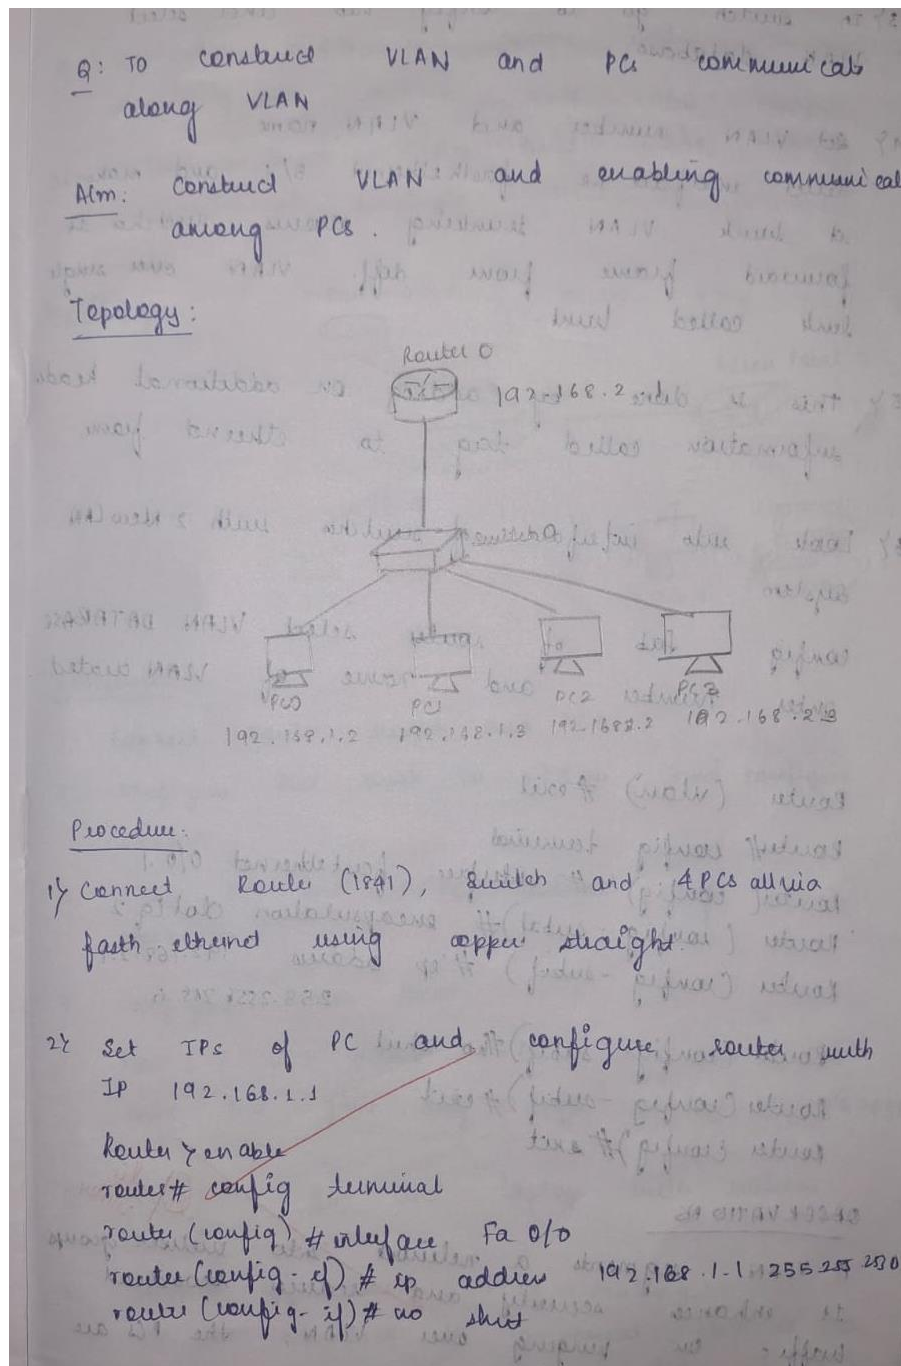 Q: TO construct VLAN and PCs communicate
along VLAN
Aim: Construct VLAN and enabling communicat
among PCs.
Topology:
Router 0
192.168.2.1
PC0 PC1 PC2 PC3
192.168.1.2 192.168.1.3 192.1682.2 192.168.2.3
Procedure:
1) Connect Router (1841), Switch and 4 PCs all via
fasth ethernet using copper straight.
2) Set IPs of PC and configure router with
IP 192.168.1.1
Router > enable
router# config terminal
router (config) # interface Fa 0/0
router (config-if) # ip address 192.168.1.1 255.255.255.0
router (config-if) # no shut